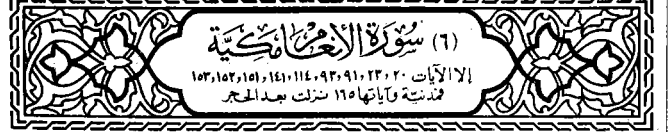 (٦) سُورَة الأنعَام مَكيَّة
إلا الآيات ٢٠، ٢٣، ٩١، ٩٣، ١١٤، ١٤١، ١٥١، ١٥٢، ١٥٣
فمدنيّة وآياتها ١٦٥ نزلت بعد الحجر